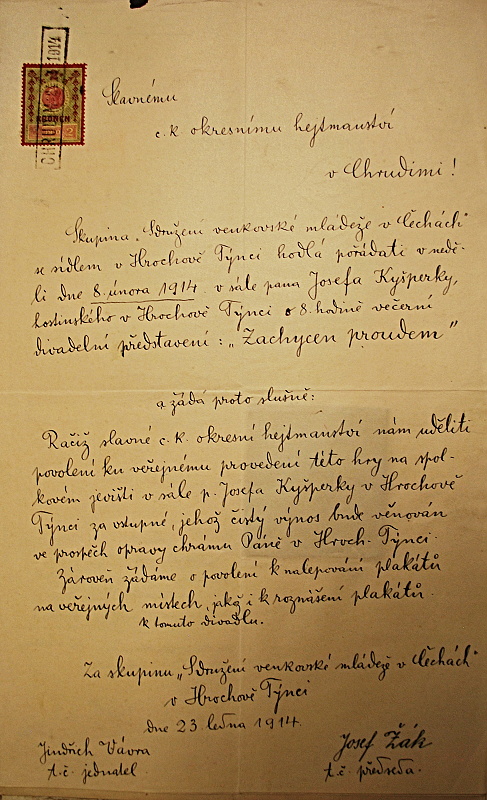 CHRUDIM 1914
KRONEN
2
Slavnému
c. k. okresnímu hejtmanství
v Chrudimi!
Skupina „Sdružení venkovské mládeže v Čechách"
se sídlem v Hrochově Týnci hodlá pořádati v nedě-
li dne 8. února 1914 v sále pana Josefa Kyšperky,
hostinského v Hrochově Týnci o 8. hodině večerní
divadelní představení: „Zachycen proudem"
a žádá proto slušně:
Račiž slavné c. k. okresní hejtmanství nám uděliti
povolení ku veřejnému provedení této hry na spol-
kovém jevišti v sále p. Josefa Kyšperky v Hrochově
Týnci za vstupné, jehož čistý výnos bude věnován
ve prospěch opravy chrámu Páně v Hroch. Týnci.
Zároveň žádáme o povolení k nalepování plakátů
na veřejných místech, jakož i k roznášení plakátů
k tomuto divadlu.
Za skupinu „Sdružení venkovské mládeže v Čechách"
v Hrochově Týnci
dne 23 ledna 1914.
Jindřich Vávra
t. č. jednatel
Josef Žák
t. č. předseda.